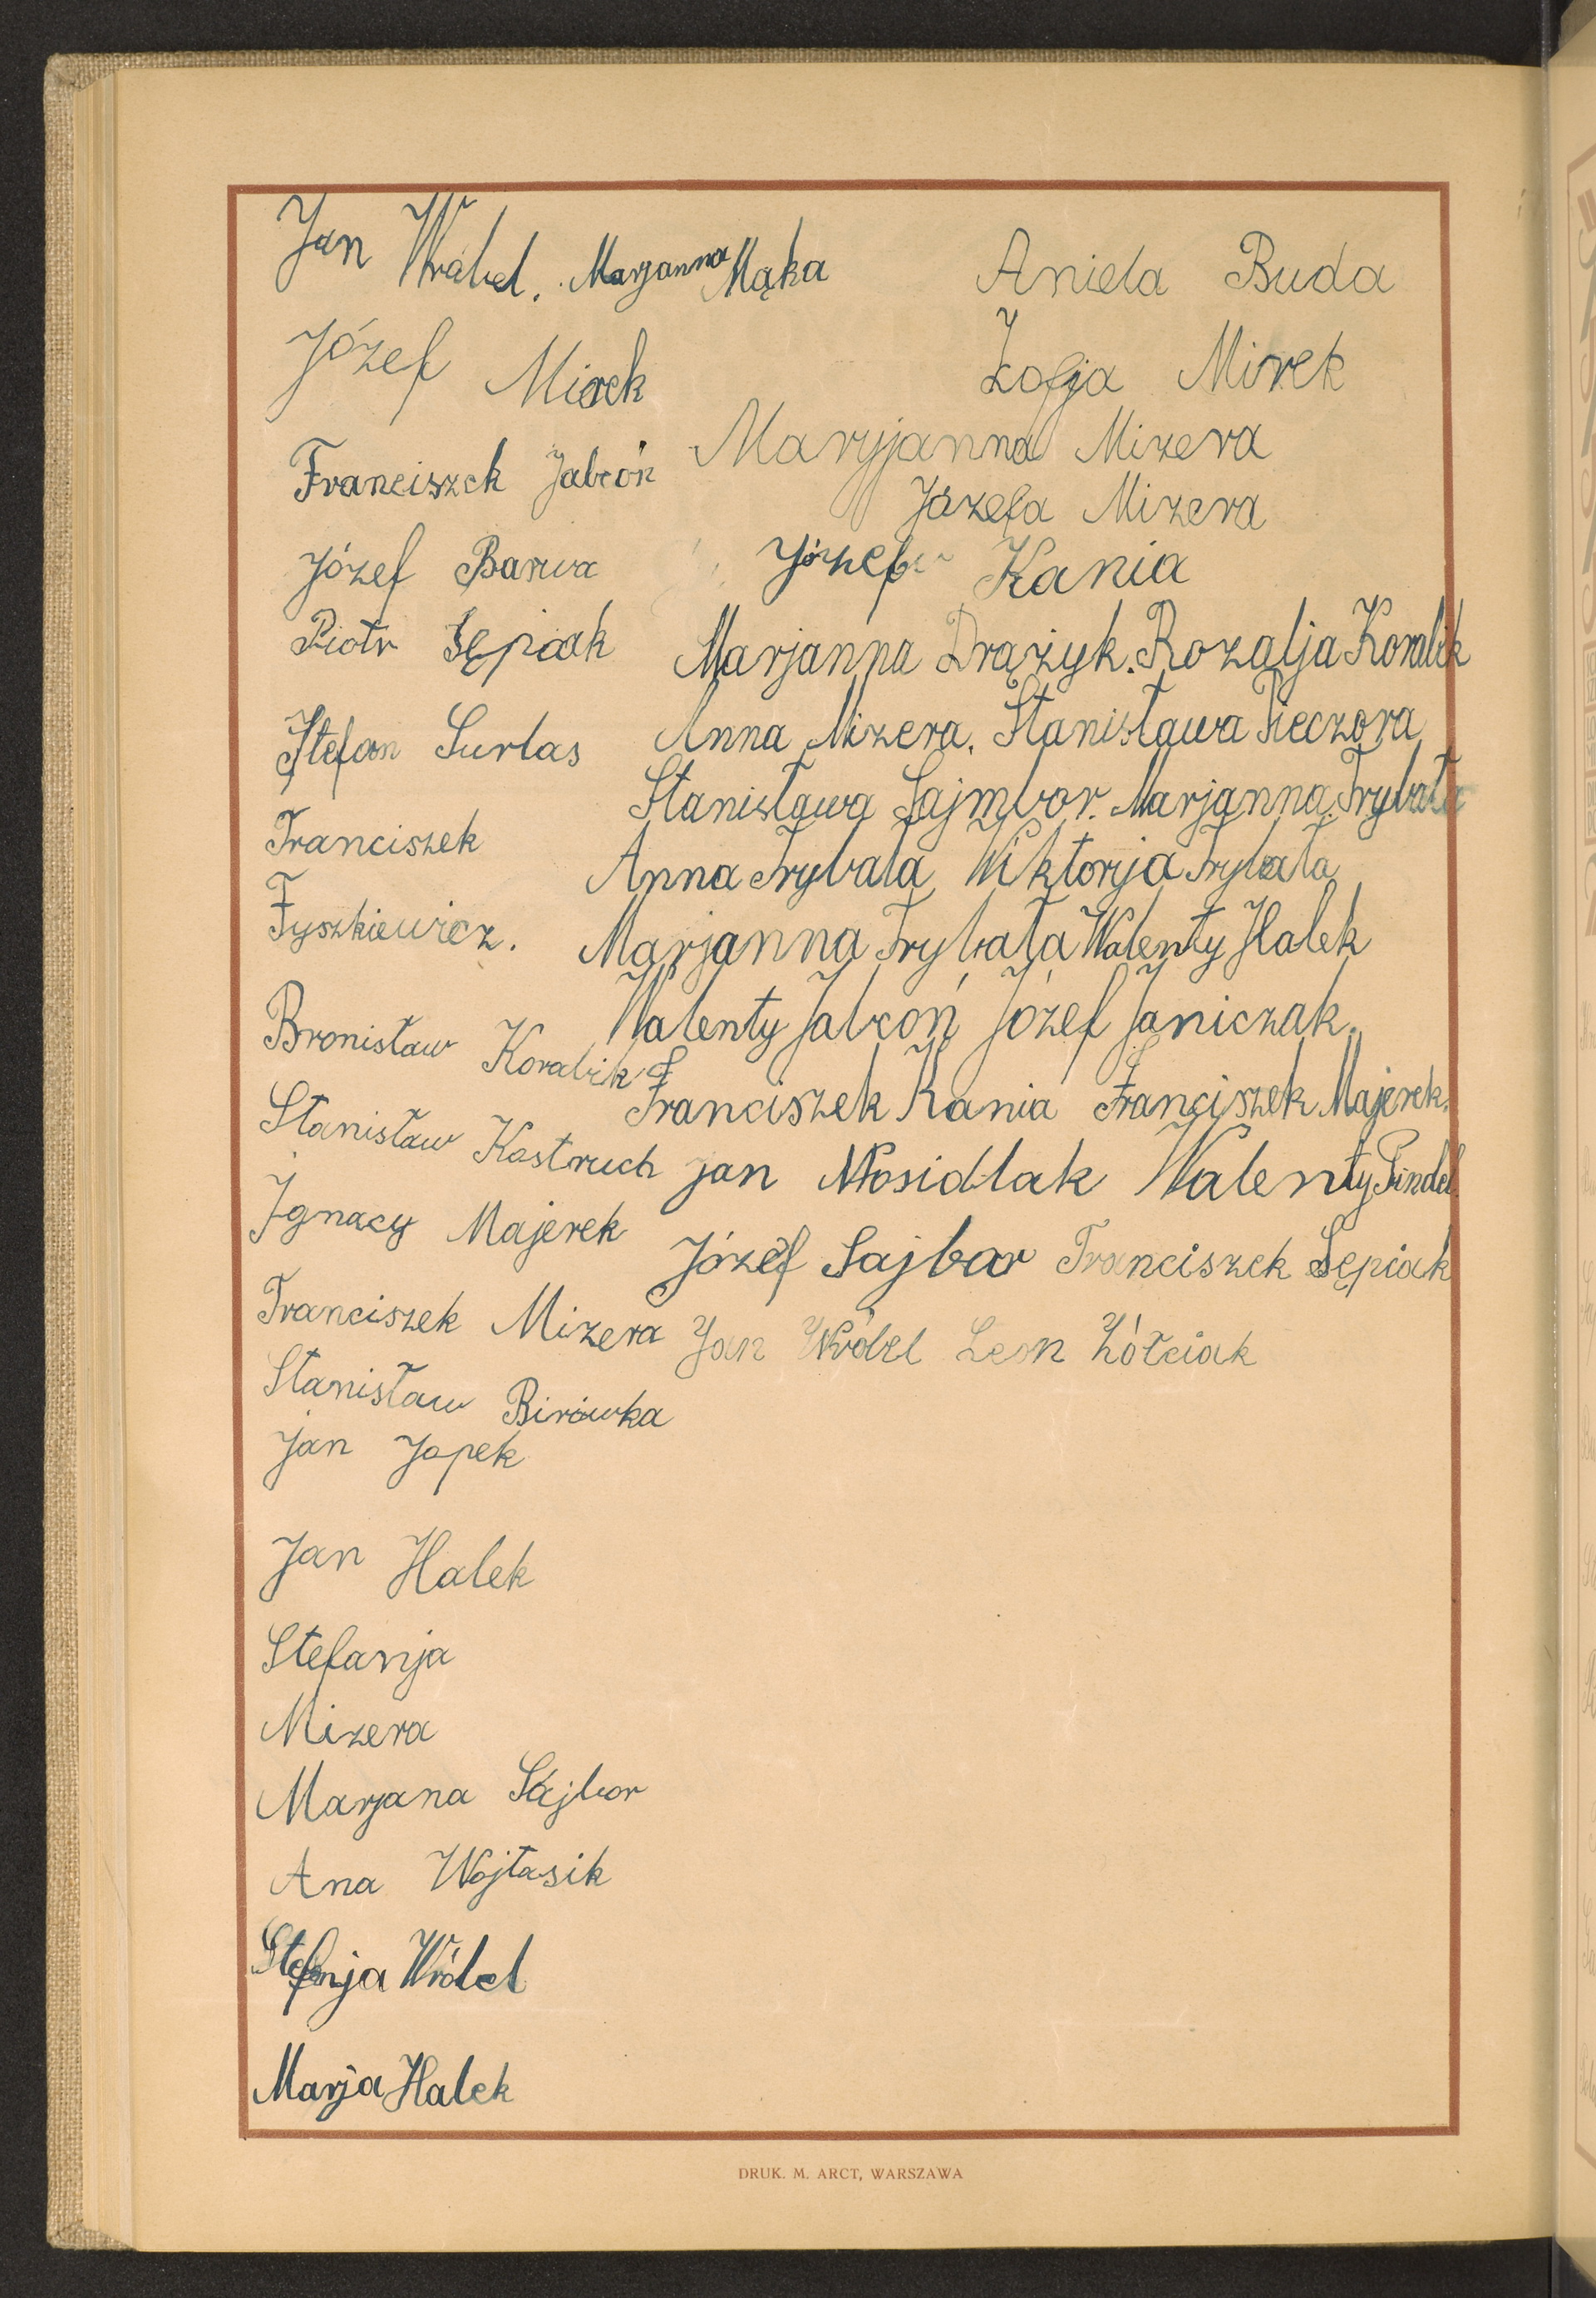 Jan Wróbel. Marjanna Mąka
Józef Mirek
Franciszek Jabcoń
Józef Barwa
Piotr Sępiak
Stefan Surlas
Franciszek
Tyszkiewicz.
Bronisław Koralik
Stanisław Kostruch
Ignacy Majerek
Franciszek Mizera
Stanisław Birówka
Jan Japek
Jan Halek
Stefanja
Mizera
Marjana Sajbor
Ana Wojtasik
Stefanja Wróbel
Marja Halek
Aniela Buda
Zofja Mirek
Maryjanna Mizera
Józefa Mizera
Józef Kania
Marjanna Drążyk. Rozalja Koralik
Anna Mizera. Stanisława Pieczora
Stanisława Sajmbor. Marjanna Trybała
Anna Trybała Wiktorja Trybała
Marjanna Trybała Walenty Halek
Walenty Jabcoń Józef Janiczak.
Franciszek Kania Franciszek Majerek.
Jan Nosidlak Walenty Pindel
Józef Sajbor Franciszek Sępiak
Jan Wróbel Leon Żółciak
DRUK. M. ARCT, WARSZAWA